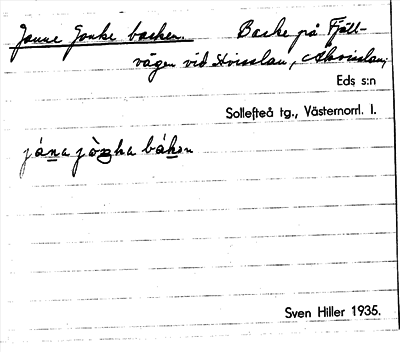 Janne Jonke backen. Backe på Fjäll-
vägen vid Hvisslan, Akvisslan,
Eds s:n
Sollefteå tg., Västernorrl. l.
jána jòŋka bákən
Sven Hiller 1935.